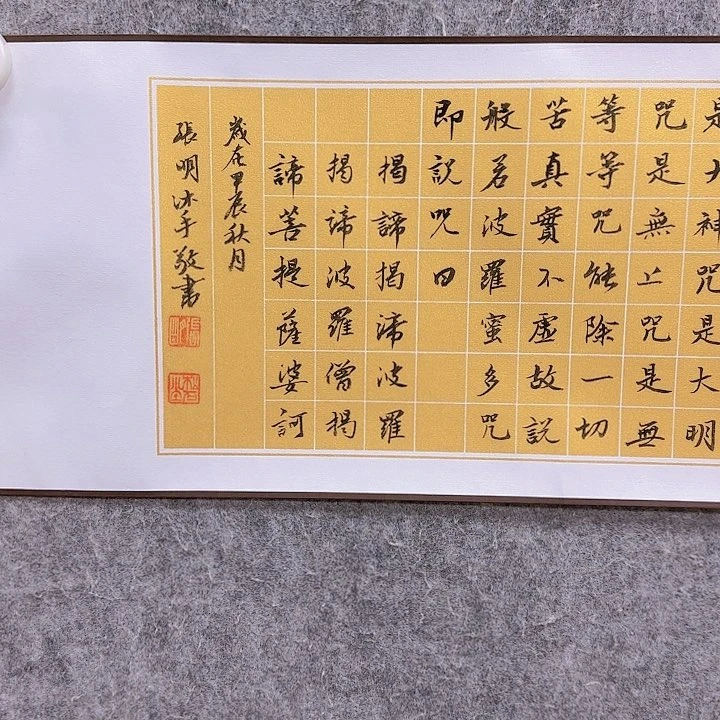 是大神咒是大明
咒是無上咒是無
等等咒能除一切
苦真實不虛故説
般若波羅蜜多咒
即説咒曰
揭諦揭諦波羅
揭諦波羅僧揭
諦菩提薩婆訶
歲在甲辰秋月
張明沐手敬書